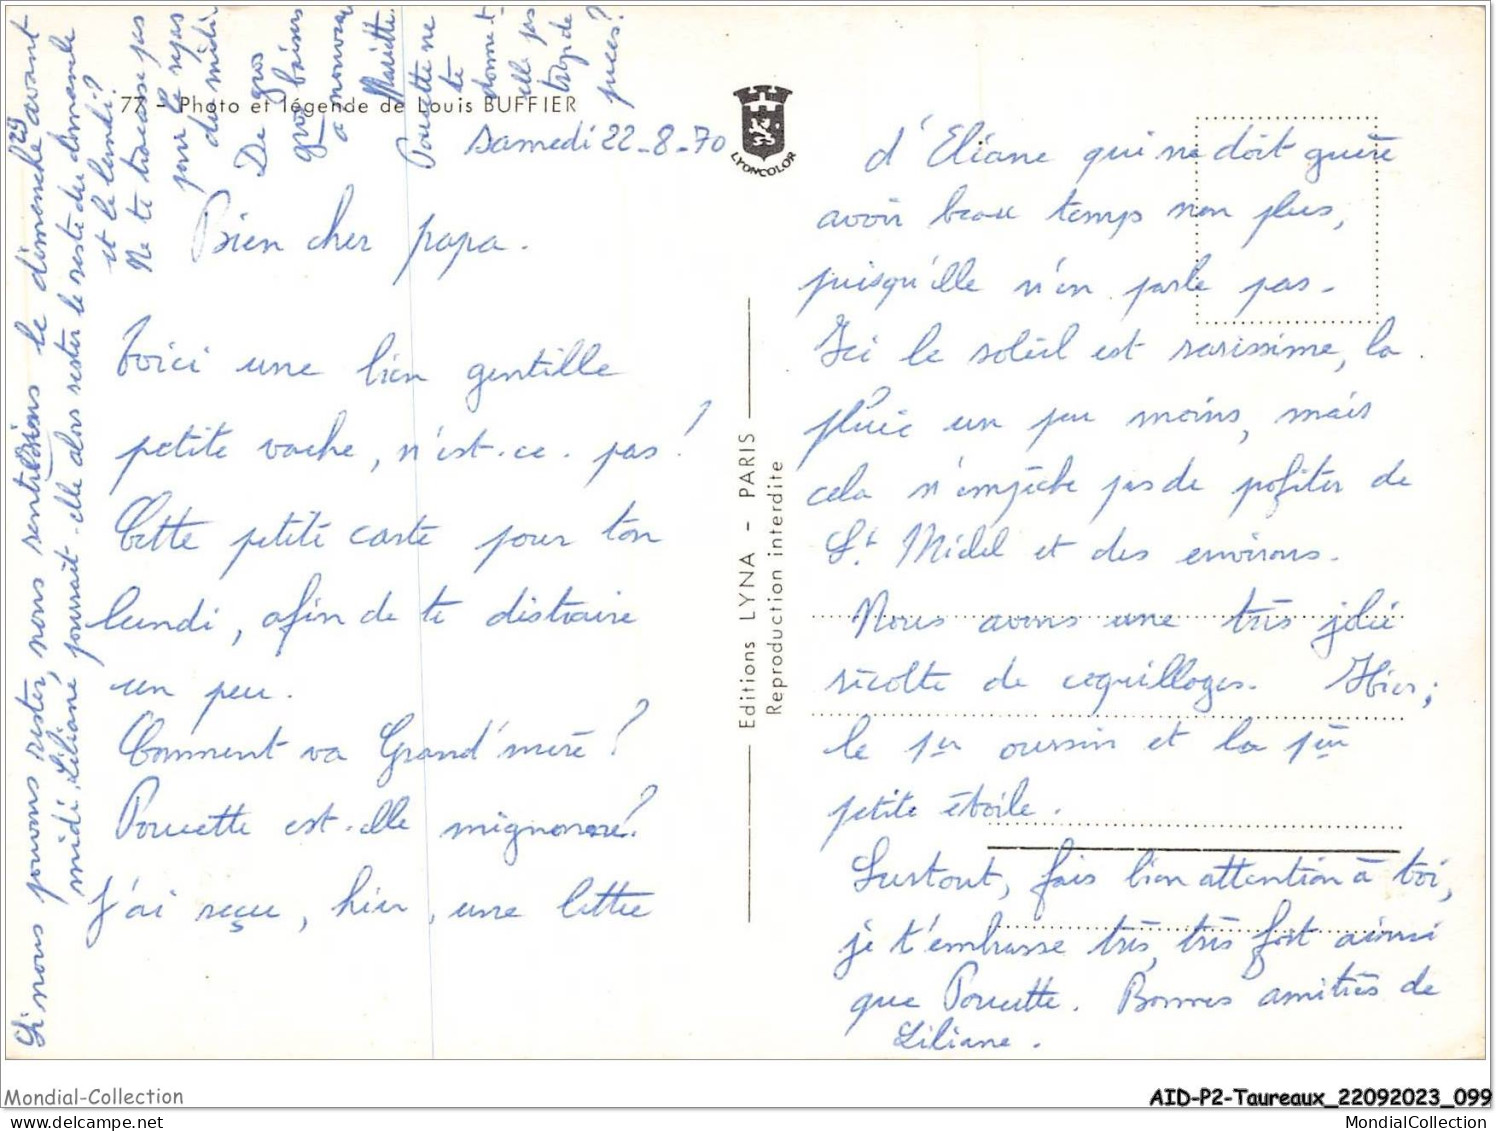 77 - Photo et légende de Louis BUFFIER
Samedi 22-8-70
Bien cher papa.
Voici une bien gentille
petite vache, n'est-ce-pas!
Cette petite carte pour ton
lundi, afin de te distraire
un peu.
Comment va Grand'mère?
Poucette est-elle mignonne?
J'ai reçu, hier, une lettre
d'Eliane qui ne doit guère
avoir beau temps non plus,
puisqu'elle n'en parle pas.
Ici le soleil est rarissime, la
pluie un peu moins, mais
cela n'empêche pas de profiter de
St Michel et des environs.
Nous avons une très jolie
récolte de coquillages. Hier;
le 1er oursin et la 1ère
petite étoile.
Surtout, fais bien attention à toi,
je t'embrasse très, très fort ainsi
que Poucette. Bonnes amitiés de
Liliane.
Si nous pouvons rester, nous rentrerions le dimanche avant
29
midi. Liliane pourrait-elle alors rester le reste du dimanche
et le lundi?
Ne te tracasse pas
pour le repas
du midi.
De gros
gros baisers
à nouveau
Mariette.
Poucette ne
te
donne-t-
elle pas
trop de
puces?
LYONCOLOR
Editions LYNA - PARIS
Reproduction interdite
Mondial-Collection
AID-P2-Taureaux_22092023_099
MondialCollection